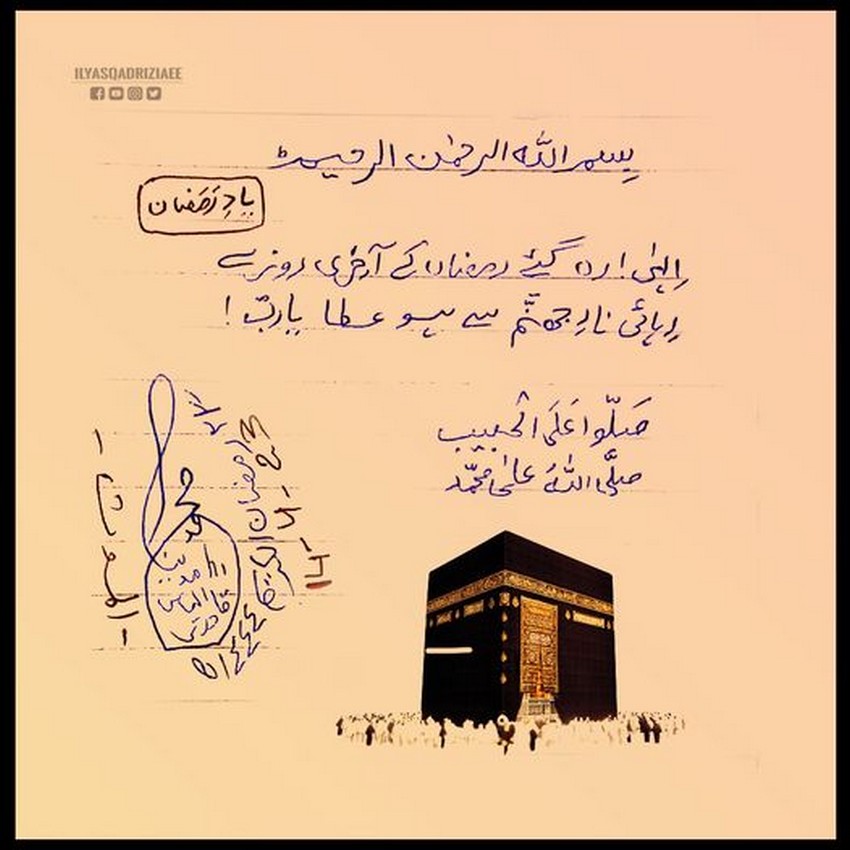 ILYASQADRIZIAEE
بِسمِ اللّٰه الرحمٰن الرحیم ط
یادِ رَمَضان
اِلٰہی! رہ گئے رمضان کے آخِری روزے
رِہائی نارِ جہنَّم سے ہو عطا یاربّ!
صَلُّوا عَلَی الْحَبِیب
صلَّی اللّٰهُ علٰی محمَّد
محمد
الموت
۱٤٤٤ھ